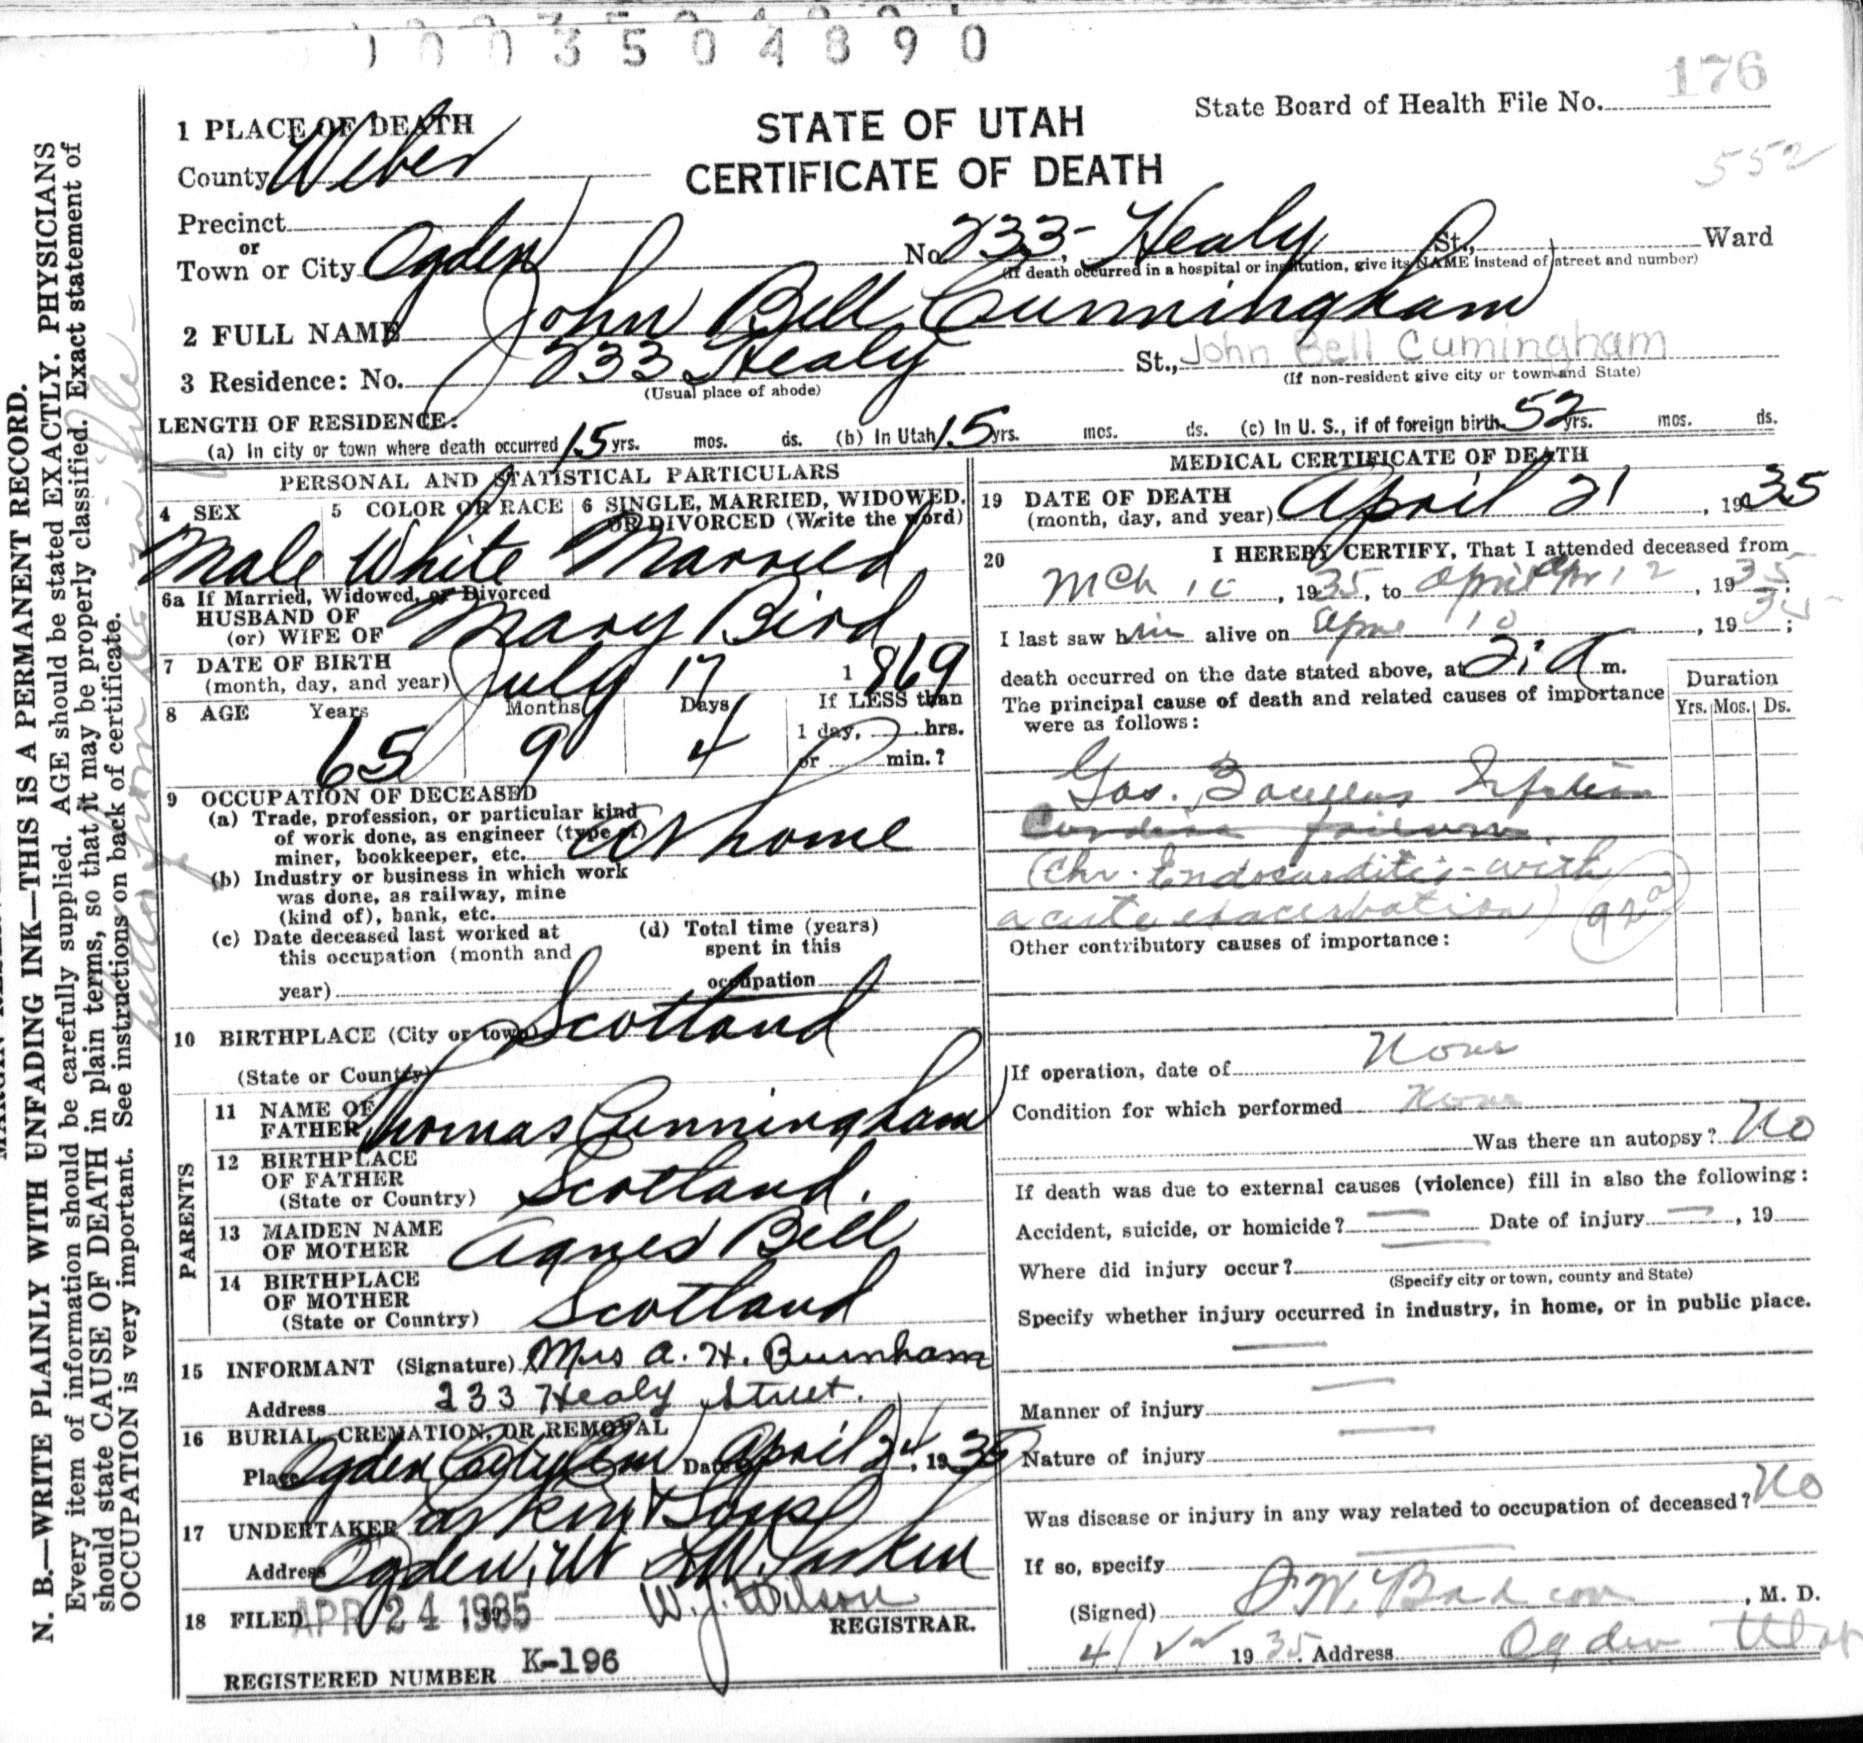 1003504890
176
State Board of Health File No.
552
STATE OF UTAH
CERTIFICATE OF DEATH
1 PLACE OF DEATH
County Weber
Precinct
or
Town or City Ogden No. 233 Healy St., Ward
(If death occurred in a hospital or institution, give its NAME instead of street and number)
2 FULL NAME John Bell Cunningham
3 Residence: No. 233 Healy St., John Bell Cumingham
(Usual place of abode) (If non-resident give city or town and State)
LENGTH OF RESIDENCE:
(a) In city or town where death occurred 15 yrs. mos. ds. (b) In Utah 15 yrs. mos. ds. (c) In U. S., if of foreign birth 52 yrs. mos. ds.
PERSONAL AND STATISTICAL PARTICULARS
4 SEX 5 COLOR OR RACE 6 SINGLE, MARRIED, WIDOWED, OR DIVORCED (Write the word)
Male White Married
6a If Married, Widowed, or Divorced
HUSBAND OF
(or) WIFE OF Mary Bird
7 DATE OF BIRTH
(month, day, and year) July 17 1869
8 AGE Years Months Days If LESS than
1 day, hrs.
65 9 4 or min.?
9 OCCUPATION OF DECEASED
(a) Trade, profession, or particular kind
of work done, as engineer (type of)
miner, bookkeeper, etc. at home
(b) Industry or business in which work
was done, as railway, mine
(kind of), bank, etc.
(c) Date deceased last worked at
this occupation (month and
year)
(d) Total time (years)
spent in this
occupation
10 BIRTHPLACE (City or town) Scotland
(State or Country)
PARENTS
11 NAME OF
FATHER Thomas Cunningham
12 BIRTHPLACE
OF FATHER
(State or Country) Scotland.
13 MAIDEN NAME
OF MOTHER Agnes Bell
14 BIRTHPLACE
OF MOTHER
(State or Country) Scotland
15 INFORMANT (Signature) Mrs A. H. Burnham
Address 233 Healy Street.
16 BURIAL, CREMATION, OR REMOVAL
Place Ogden City Cem Date April 24, 1935
17 UNDERTAKER Larkin & Sons
Address Ogden, Ut Larkin
18 FILED APR 24 1935 W. J. Wilson
REGISTRAR.
REGISTERED NUMBER K-196
MEDICAL CERTIFICATE OF DEATH
19 DATE OF DEATH
(month, day, and year) April 21, 1935
20 I HEREBY CERTIFY, That I attended deceased from
Mch, 1935, to Apr 12, 1935;
I last saw him alive on 10, 1935;
death occurred on the date stated above, at 2:A m.
The principal cause of death and related causes of importance
were as follows:
Duration
Yrs. Mos. Ds.
Cardiac failure
(Chr. Endocarditis - with
acute exacerbation) 92a
Other contributory causes of importance:
If operation, date of None
Condition for which performed None
Was there an autopsy? No
If death was due to external causes (violence) fill in also the following:
Accident, suicide, or homicide? Date of injury, 19
Where did injury occur?
(Specify city or town, county and State)
Specify whether injury occurred in industry, in home, or in public place.
Manner of injury
Nature of injury
Was disease or injury in any way related to occupation of deceased? No
If so, specify
(Signed), M. D.
1935 Address Ogden Utah
N. B.—WRITE PLAINLY WITH UNFADING INK—THIS IS A PERMANENT RECORD.
Every item of information should be carefully supplied. AGE should be stated EXACTLY. PHYSICIANS
should state CAUSE OF DEATH in plain terms, so that it may be properly classified. Exact statement of
OCCUPATION is very important. See instructions on back of certificate.